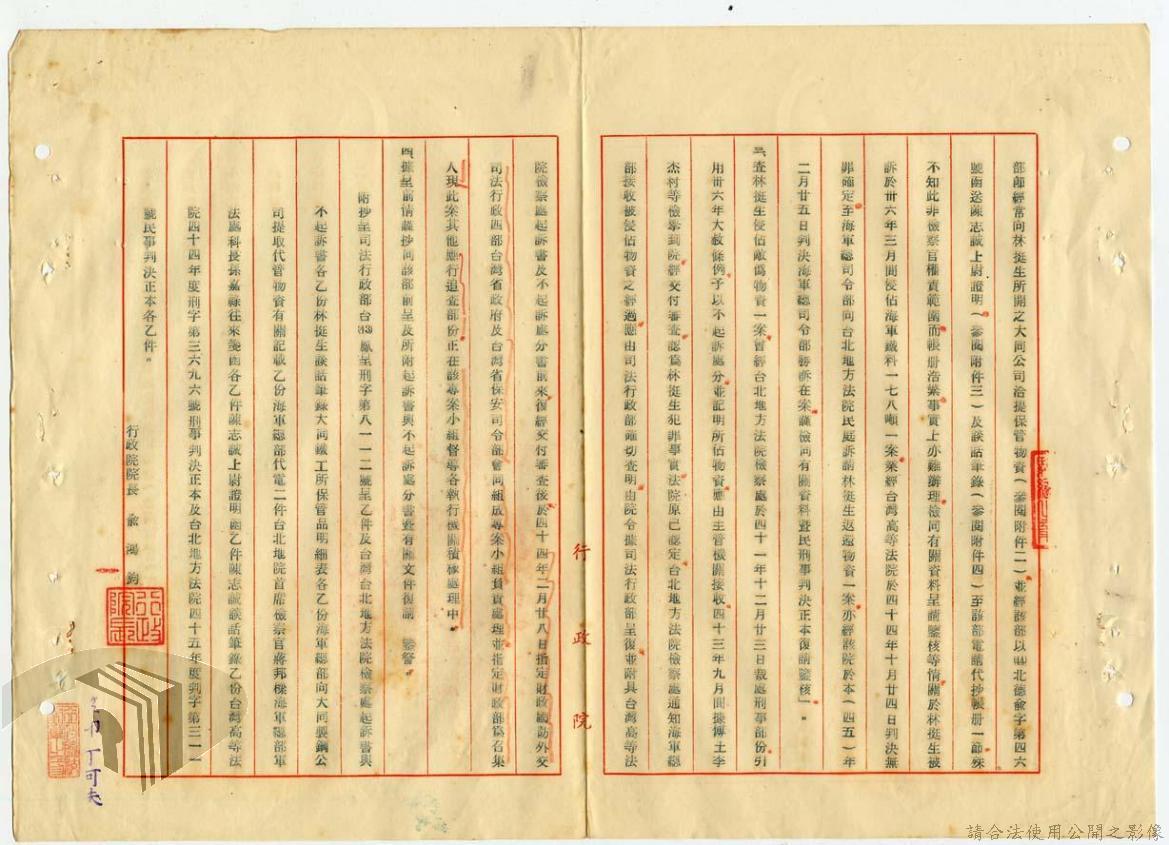 部師經常向林挺生所開之大同公司洽提保管物資(參閱附件二)並經該部以㈣北德兪字第四六
號函送陳志誠上尉證明(參閱附件三)及談話筆錄(參閱附件四)至該部電請代抄帳册一節殊
不知此非檢察官權責範圍而帳册浩繁事實上亦難辦理檢同有關資料呈請鑒核等情關於林挺生被
訴於卅六年三月間侵佔海軍鐵料一七八噸一案業經台灣高等法院於四十四年十月廿四日判決無
罪確定至海軍總司令部向台北地方法院民庭訴請林挺生返還物資一案亦經該院於本(四五)年
二月廿五日判決海軍總司令部勝訴在案謹檢同有關資料暨民刑事判決正本復請鑒核」。
三、查林挺生侵佔敵僞物資一案曾經台北地方法院檢察處於四十一年十二月廿三日裁處刑事部份引
用卅六年大赦條例予以不起訴處分並記明所佔物資應由主管機關接收四十三年九月間據傅土李
杰村等檢舉到院經交付審查認爲林挺生犯罪事實法院原已認定台北地方法院檢察處通知海軍總
部接收被侵佔物資之經過應由司法行政部確切查明由院令據司法行政部呈復並附具台灣高等法
行政院
院檢察處起訴書及不起訴處分書前來復經交付審查後於四十四年二月廿八日指定財政國防外交
司法行政四部台灣省政府及台灣省保安司令部會同組成專案小組負責處理並指定財政部爲召集
人現此案其他應行追查部份正在該專案小組督導各執行機關積極處理中。
四、據呈前情謹抄同該部前呈及所附起訴書與不起訴處分書暨有關文件復請 鑒詧。
附抄呈司法行政部台㈣鳳呈刑字第八一一二號呈乙件及台灣台北地方法院檢察處起訴書與
不起訴書各乙份林挺生談話筆錄大同鐵工所保管品明細表各乙份海軍總部向大同製鋼公
司提取代管物資有關記載乙份海軍總部代電二件台北地院首席檢察官蔣邦樑海軍總部軍
法處科長孫嘉祿往來箋函各乙件陳志誠上尉證明函乙件陳志誠談話筆錄乙份台灣高等法
院四十四年度刑字第三六九六號刑事判決正本及台北地方法院四十五年度判字第三一一
號民事判決正本各乙件。
行政院院長 兪鴻鈞
行政院長
丁可夫
請合法使用公開之影像